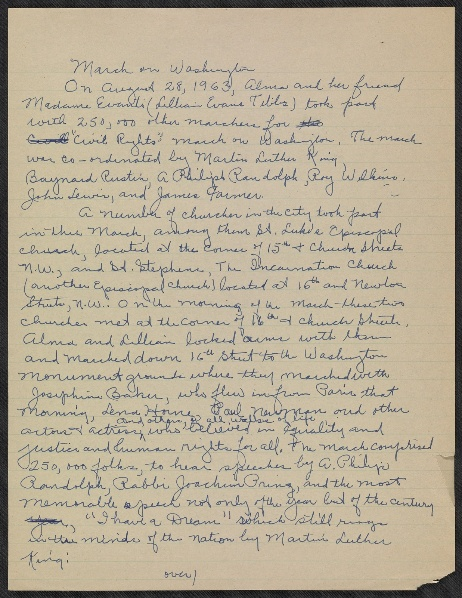 March on Washington
On August 28, 1963, Alma and her friend
Madame Evanti (Lillian Evans Tibbs) took part
with 250,000 other marchers for
"Civil Rights" march on Washington. The march
was co-ordinated by Martin Luther King,
Baynard Rustin, A Philiph Randolph, Roy Wilkins,
John Lewis, and James Farmer.
A number of churches in the city took part
in this March, among them St. Luke's Episcopal
church, located at the corner of 15th & Church Streets
N.W., and St. Stephens, The Incarnation Church
(another Episcopal Church) located at 16th and Newton
Streets, N.W. On the morning of the March these two
churches met at the corner of 16th & Church Streets.
Alma and Lillian locked arms with them
and marched down 16th Street to the Washington
monument grounds where they marched with
Josephine Baker, who flew in from Paris that
morning, Lena Horne, Paul Newman and other
and others of all walks of life
actors & actress, who believed in equality and
justice and human rights for all. The march comprised
250,000 folks, to hear speeches by A. Philip
Randolph, Rabbi Joachim Prinz, and the most
memorable speech not only of the year but of the century
"I have a Dream" which still rings
in the minds of the nation by Martin Luther
King.
over)